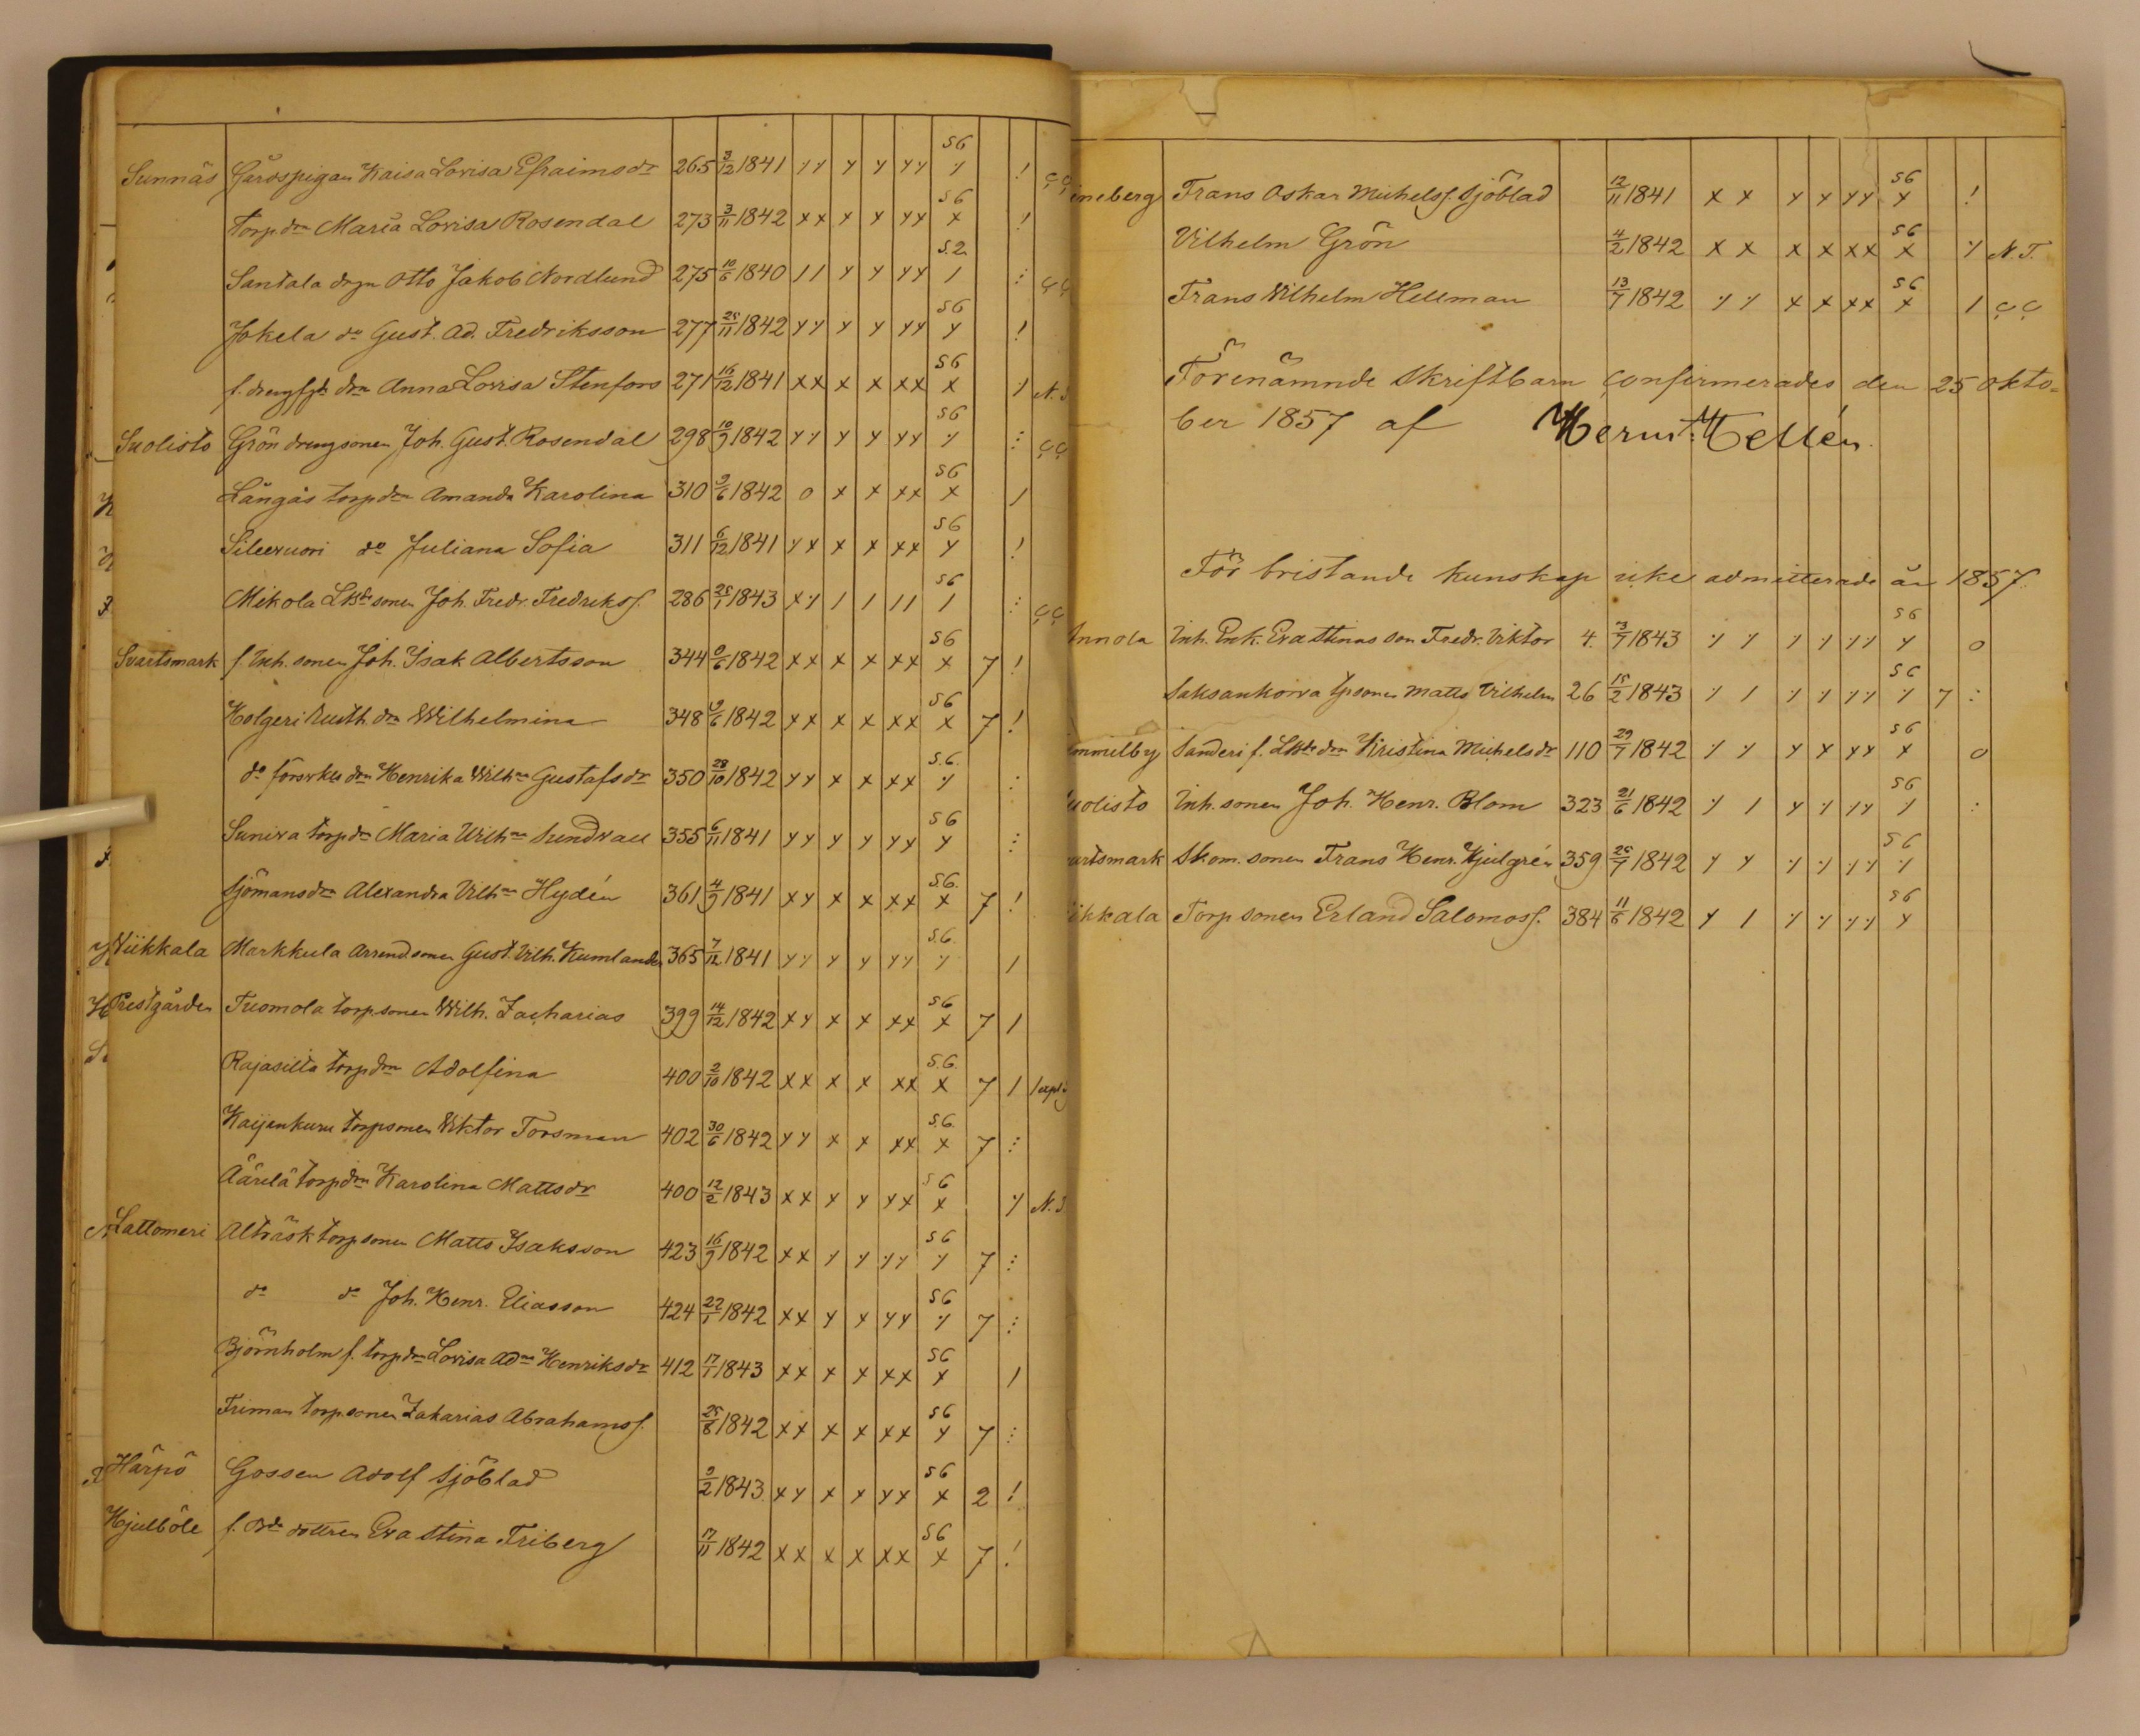 Sunnäs Gårdspigan Kaisa Lovisa Efraimsdr 265 3/12 1841 S6 !
torp.drn Maria Lovisa Rosendal 273 3/11 1842 x x x x x x S6 x !
Santala drgn Otto Jakob Nordlund 275 10/6 1840 S.2
Jokela do Gust. Ad. Fredriksson 277 25/11 1842 S6 !
f. drengfgds drn Anna Lovisa Stenfors 271 16/12 1841 x x x x x x S6 x
Suolisto Grön drengsonen Joh. Gust. Rosendal 298 10/9 1842 S6
Långås torpdrn Amanda Karolina 310 9/6 1842 0 x x x x S6 x /
Sileevuori do Juliana Sofia 311 6/12 1841 S6 !
Mikola Lkde sonen Joh. Fredr. Fredrikss. 286 25/1 1843 S6
Svartsmark f. Inh. sonen Joh. Isak Albertsson 344 9/6 1842 x x x x x x S6 x 7 !
Holgeri Rusth. drn Wilhelmina 348 9/6 1842 x x x x x x S6 x 7 !
do försvkes drn Henrika Wilhna Gustafsdr 350 28/10 1842 S.6.
Suniva torpdrn Maria Wilhna Sundvall 355 6/11 1841 S6
Sjömansdrn Alexandra Vilhna Hydén 361 4/9 1841 S.6. x 7 !
Wiikkala Markkula Arrend.sonen Gust. Vilh. Kumlander 365 7/12 1841 S.6. /
Prestgården Tuomola torpsonen Wilh. Zacharias 399 14/12 1842 S6 x 7 /
Rajasilta torpdrn Adolfina 400 2/10 1842 x x x x x x S.6. x 7 /
Kaijenkuru torpsonen Viktor Forsman 402 30/6 1842 S.6. x 7
Äärilä torpdrn Karolina Mattsdr 400 12/2 1843 S6 x
Lattomeri Alträsk torpsonen Matts Isaksson 423 16/9 1842 S6 7
do do Joh. Henr. Eliasson 424 22/1 1842 S6 7
Björnholm f. torpdrn Lovisa Adna Henriksdr 412 17/1 1843 x x x x x x S6 x /
Friman torpsonen Zakarias Abrahamss. 25/8 1842 x x x x x x S6 7
Harpö Gossen Adolf Sjöblad 9/2 1843 S6 x 2 !
Hjulböle f. Bde dottren Eva Stina Friberg 17/11 1842 x x x x x x S6 x 7 !
ineberg Frans Oskar Michelss. Sjöblad 12/11 1841 S6 !
Vilhelm Grön 4/2 1842 x x x x x x S6 x N.T.
Frans Wilhelm Hellman 13/7 1842 S6 x /
Förenämnde Skriftbarn confirmerades den 25 Okto=
ber 1857 af Hermn Hellén.
För bristande kunskap icke admitterade år 1857.
Annola Inh. Enk. Eva Stinas son Fredr. Viktor 4. 3/7 1843 S6 0
Saksankoiva tpsonen Matts Vilhelm 26 15/2 1843 S6 7
mmilby Sanderi f. Lkde drn Kristina Michelsdr 110 29/7 1842 S6 x 0
uolisto Inh. sonen Joh. Henr. Blom 323 21/6 1842 S6
artsmark Skom. sonen Frans Henr. Kjulgrén 359 25/7 1842 S6
ikkala Torpsonen Erland Salomoss. 384 11/6 1842 S6